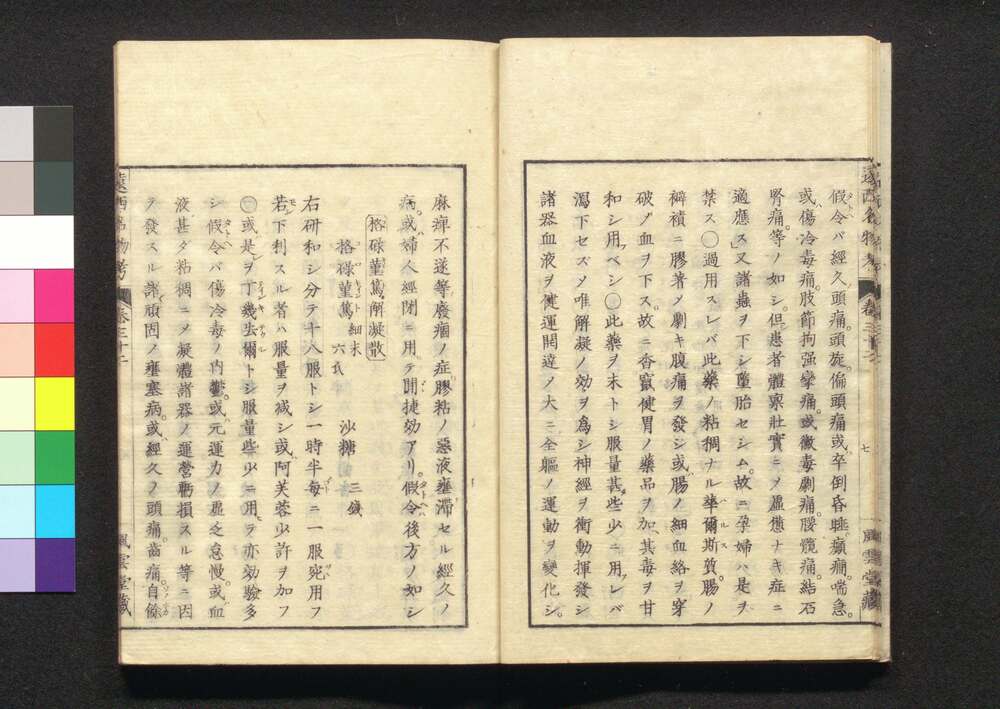 假令バ經久頭痛。頭旋。偏頭痛。或卒倒昏睡。癲癇。喘急。
或傷冷毒痛。肢節拘强攣痛。或黴毒劇痛。腰髖痛。結石
腎痛。等ノ如シ。但患者體稟壯實ニメ虛憊ナキ症ニ
適應ス又諸蟲ヲ下シ墮胎セシム。故ニ孕婦ハ是ヲ
禁ス〇過用スレバ此藥ノ粘稠ナル華爾斯質。腸ノ
襞襀ニ膠著ノ劇キ腹痛ヲ發シ或ハ腸ノ細血絡ヲ穿
破メ血ヲ下ス。故ニ香竄健胃ノ藥品ヲ加、其毒ヲ甘
和シ用ベシ〇此藥ヲ末トシ服量甚些少ニ用レバ
瀉下セズメ唯解凝ノ効ヲ爲シ神經ヲ衝動揮發シ
諸器血液ヲ健運開達メ大ニ全軀ノ運動ヲ變化シ。
七
風雲堂藏
麻痺不遂等廢痼ノ症膠粘ノ惡液壅滯セル經久ノ
病。或婦人經閉ニ用テ開捷効アリ。假令後方ノ如シ
格碌菫篤解凝散
格碌菫篤 細末 六氐 沙糖 三錢
右研和シ分テ十八服トシ一時半每ニ一服宛用フ
若下利スル者ハ服量ヲ减シ或阿芙蓉少許ヲ加フ
〇或是ヲ丁幾去爾トシ服量些少ニ用ヲ亦効驗多
シ假令バ傷冷毒ノ內鬱。或ハ元運力ノ虛乏怠慢。或血
液甚タ粘稠ニメ凝體諸器ノ運營虧損スル等ニ因
ヲ發スル諸頑固ノ壅塞病。或經久ノ頭痛。齒痛。自餘
遠西名物考 卷三十二
風雲堂藏